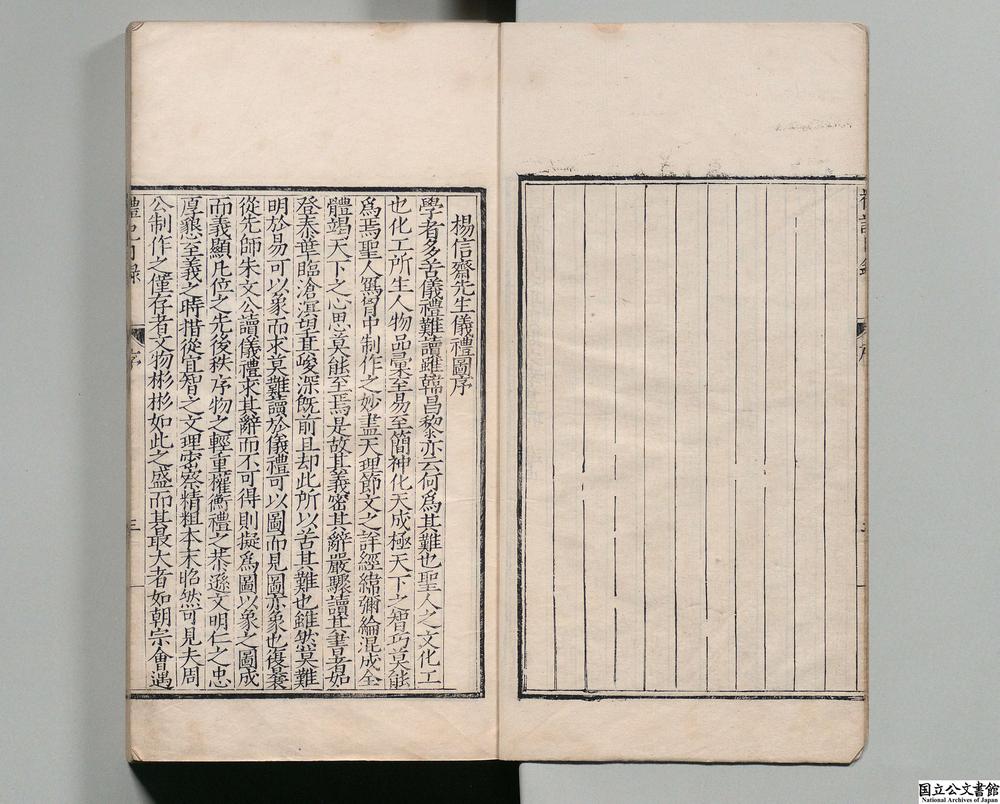 楊信齋先生儀禮圖序
學者多苦儀禮難讀雖韓昌黎亦云何爲其難也聖人之文化工
也化工所生人物品彙至易至簡神化天成極天下之智巧莫能
爲焉聖人胷中制作之妙盡天理節文之詳經緯彌綸混成全
體竭天下之心思莫能至焉是故其義密其辭嚴驟讀其書者如
登泰華臨滄溟望其峻深旣前且却此所以苦其難也雖然莫難
明於易可以象而求莫難讀於儀禮可以圖而見圖亦象也復曩
從先師朱文公讀儀禮求其辭而不可得則擬爲圖以象之圖成
而義顯凡位之先後秩序物之輕重權衡禮之恭遜文明仁之忠
厚懇至義之時措從宜智之文理密察精粗本末昭然可見夫周
公制作之僅存者文物彬彬如此之盛而其最大者如朝宗會遇
禮記目錄
序
三
国立公文書館
National Archives of Japan